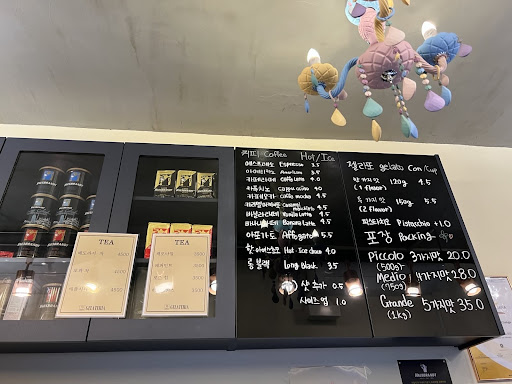 커피 Coffee Hot/Ice
에스프레소 Espresso 3.5
아메리카노 Americano 3.5
카페라떼 Caffe Latte 4.0
카푸치노 Cappuccino 4.0
카페모카 Caffe mocha 4.5
카라멜마끼아또 Caramel Macchiato 4.5
바닐라라떼 Vanilla Latte 4.5
바나나라떼 Banana Latte 4.5
아포가토 Affogato 5.5
핫·아이스초코 Hot·Ice choco 4.0
롱블랙 Long black 3.5
샷 추가 0.5
사이즈 업 1.0
젤라또 gelato Con/Cup
한 가지 맛 120g 4.5
(1 flavor)
두 가지 맛 150g 5.5
(2 flavor)
피스타치오 Pistacchio +1.0
포장 Packing
Piccolo 3가지맛 20.0
(500g)
Medio 4가지맛 28.0
(750g)
Grande 5가지맛 35.0
(1kg)
TEA
TEA